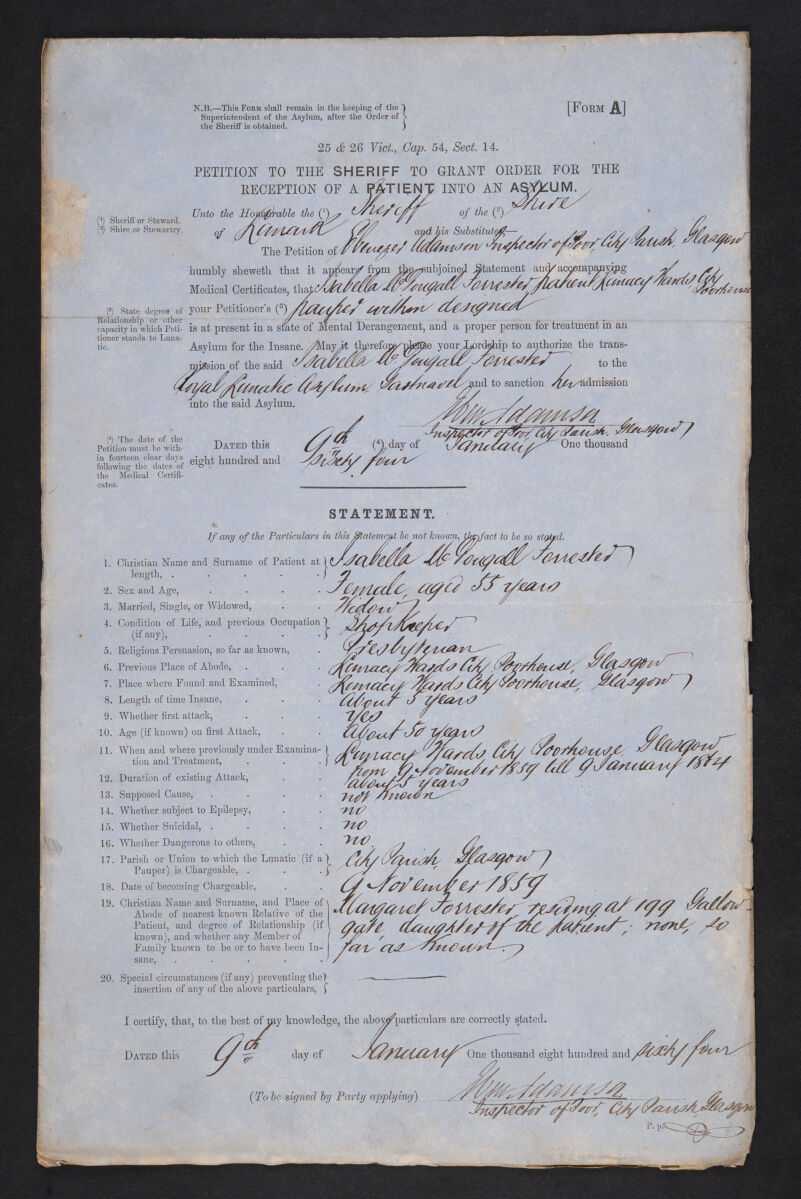 N.B.—This Form shall remain in the keeping of the
Superintendent of the Asylum, after the Order of
the Sheriff is obtained.
[Form A]
25 & 26 Vict., Cap. 54, Sect. 14.
PETITION TO THE SHERIFF TO GRANT ORDER FOR THE
RECEPTION OF A PATIENT INTO AN ASYLUM.
(1) Sheriff or Steward.
(2) Shire or Stewartry.
Unto the Honourable the (1) Sheriff of the (2) Shire
of Lanark and his Substitutes—
The Petition of Ebenezer Adamson Inspector of Poor City Parish, Glasgow
humbly sheweth that it appears from the subjoined Statement and accompanying
Medical Certificates, that Isabella McDougall Forrester, patient Lunacy Wards, City Poorhouse
(3) State degree of
Relationship or other
capacity in which Peti-
tioner stands to Luna-
tic.
your Petitioner's (3) pauper within designed
is at present in a state of Mental Derangement, and a proper person for treatment in an
Asylum for the Insane. May it therefore please your Lordship to authorize the trans-
mission of the said Isabella McDougall Forrester to the
Royal Lunatic Asylum Gartnavel and to sanction her admission
into the said Asylum.
Adamson
Inspector of Poor, City Parish, Glasgow
(4) The date of the
Petition must be with-
in fourteen clear days
following the dates of
the Medical Certifi-
cates.
Dated this 9th (4) day of January One thousand
eight hundred and sixty four
STATEMENT.
If any of the Particulars in this Statement be not known, the fact to be so stated.
1. Christian Name and Surname of Patient at length, . . . . . Isabella McDougall Forrester
2. Sex and Age, . . . . Female, aged 55 years
3. Married, Single, or Widowed, . . Widow
4. Condition of Life, and previous Occupation (if any), . . . . Shopkeeper
5. Religious Persuasion, so far as known, . Presbyterian
6. Previous Place of Abode, . . . Lunacy Wards City Poorhouse, Glasgow
7. Place where Found and Examined, . Lunacy Wards City Poorhouse, Glasgow
8. Length of time Insane, . . . About 5 years
9. Whether first attack, . . . Yes
10. Age (if known) on first Attack, . . About 50 years
11. When and where previously under Examina-
tion and Treatment, . . . Lunacy Wards, City Poorhouse Glasgow
from 9 November 1859 till 9 January 1864
12. Duration of existing Attack, . . about 5 years
13. Supposed Cause, . . . . not known
14. Whether subject to Epilepsy, . . no
15. Whether Suicidal, . . . . no
16. Whether Dangerous to others, . . no
17. Parish or Union to which the Lunatic (if a
Pauper) is Chargeable, . . . City Parish, Glasgow
18. Date of becoming Chargeable, . . 9 November 1859
19. Christian Name and Surname, and Place of
Abode of nearest known Relative of the
Patient, and degree of Relationship (if
known), and whether any Member of
Family known to be or to have been In-
sane, . . . . . .
Margaret Forrester, residing at 199 Gallow-
gate, daughter of the patient; none, so
far as known.
20. Special circumstances (if any) preventing the
insertion of any of the above particulars,
I certify, that, to the best of my knowledge, the above particulars are correctly stated.
Dated this 9th day of January One thousand eight hundred and sixty four
(To be signed by Party applying) Adamson
Inspector of Poor, City Parish, Glasgow
P. p.